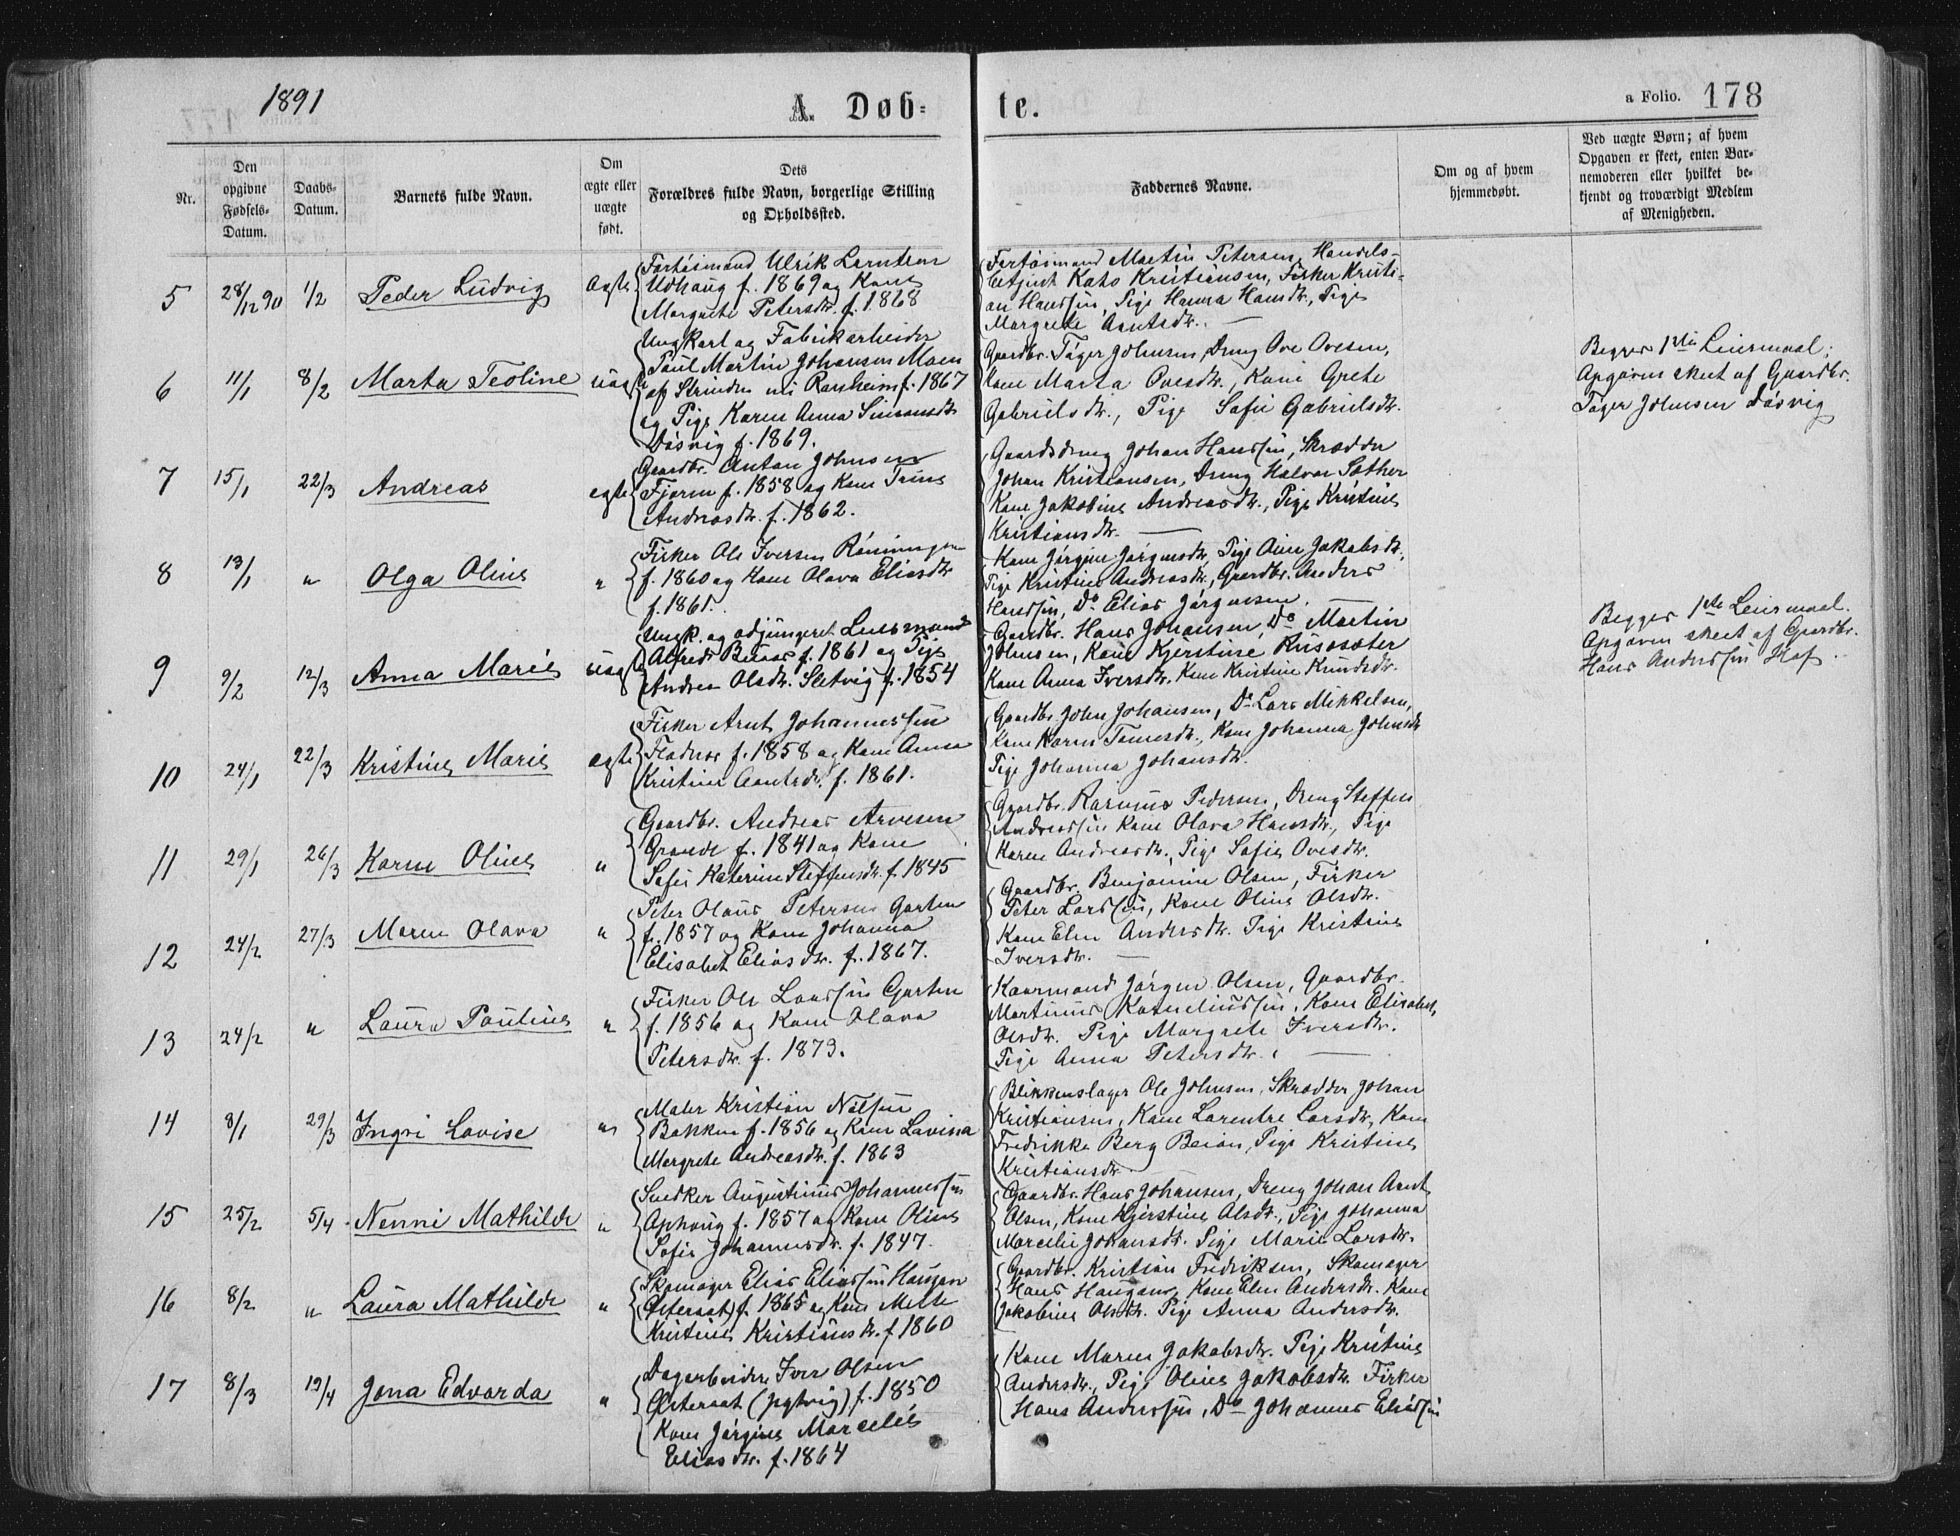 1891
A. Døb-
te.
a Folio. 178
Nr.
Den opgivne Fødsels-Datum.
Daabs-Datum.
Barnets fulde Navn.
Om ægte eller uægte født.
Dets Forældres fulde Navn, borgerlige Stilling og Opholdssted.
Faddernes Navne.
Om og af hvem hjemmedøbt.
Ved uægte Børn; af hvem Opgaven er skeet, enten Barnemoderen eller hvilket bekjendt og troværdigt Medlem af Menigheden.
5 28/12 90 1/2 Peder Ludvig ægte
Fartøimand Ulrik
Udhaug f. 1869 og Kone
Margrete Petersdr. f. 1868
Fartøimand Martin Petersen, Handels-
betjent Kato Kristiansen, Fisker Kristi-
an Hansen, Pige Hanna Hansdr., Pige
Margrete Arntsdr.
6 11/1 8/2 Marta Teoline uægte
Ungkarl og Fabrikarbeider
Paul Martin Johansen Moen
af Strinden nu Ranheim f. 1867
og Pige Karen Anna Simonsdr.
Døsvig f. 1869.
Gaardbr. Tøger Johnsen, Dreng Ove Ovesen,
Kone Marta Ovesdr., Kone Grete
Gabrielsdr., Pige Sofie Gabrielsdr.
Begges 1ste Leiermaal;
Opgaven skeet af Gaardbr.
Tøger Johnsen Døsvig
7 15/1 22/3 Andreas ægte
Gaardbr. Anton Johnsen
Fjorm f. 1858 og Kone Trine
Andreasdr. f. 1862.
Gaardsdreng Johan Hansen, Skrædder
Johan Kristiansen, Dreng Halvor Sæther
Kone Jakobine Andreasdr., Pige Kristine
Kristiansdr.
8 13/1 " Olga Oline "
Fisker Ole Iversen Rønningen
f. 1860 og Kone Olava Eliasdr.
f. 1861.
Kone Jørgine Jørgensdr., Pige Aine Jakobsdr.,
Pige Kristine Andreasdr., Gaardbr. Anders
Hansen, Do Elias Jørgensen.
9 9/2 12/3 Anna Marie uægte
Ungk. og adjungeret Lensmand
Alfred f. 1861 og Pige
Andrea Olsdr. Sletvig f. 1854
Gaardbr. Hans Johansen, Do Martin
Johnsen, Kone Kjerstine Rusosæter
Kone Anna Iversdr. Kone Kristine Knudsdr.
Begges 1ste Leiermaal.
Opgaven skeet af Gaardbr.
Hans Andersen Hof.
10 24/1 22/3 Kristine Marie ægte
Fisker Arnt Johannessen
Fladnes f. 1858 og Kone Anna
Kristine Arntsdr. f. 1861.
Gaardbr. John Johansen, Do Lars Mikkelsen,
Kone Karen Tomesdr., Kone Johanna Johnsdr.
Pige Johanna Johansdr.
11 29/1 26/3 Karen Oline "
Gaardbr. Andreas Arnesen
Grande f. 1841 og Kone
Sofie Katerine Steffensdr. f. 1845
Gaardbr. Rasmus Pedersen, Dreng Steffen
Andreassen Kone Olava Hansdr., Pige
Karen Andreasdr., Pige Sofie Ovesdr.
12 24/2 27/3 Maren Olava "
Peter Olaus Petersen Garten
f. 1857 og Kone Johanna
Elisabet Eliasdr. f. 1867.
Gaardbr. Benjamin Olsen, Fisker
Peter Larssen, Kone Oline Olsdr.
Kone Elen Andersdr. Pige Kristine
Iversdr.
13 24/2 " Laura Pauline "
Fisker Ole Larssen Garten
f. 1856 og Kone Olava
Petersdr. f. 1873.
Kaarmand Jørgen Olsen, Gaardbr.
Martinus Korneliussen, Kone Elisabet
Olsdr. Pige Margrete Iversdr.
Pige Anna Petersdr.
14 8/1 29/3 Ingri Lovise "
Maler Kristian Nilsen
Bakken f. 1856 og Kone Lavina
Margrete Andreasdr. f. 1863
Blikkenslager Ole Johnsen, Skrædder Johan
Kristiansen, Kone Larentre Larsdr., Kone
Fredrikke Berg Beian, Pige Kristine
Kristiansdr.
15 25/2 5/4 Nenni Mathilde "
Snedker Augustinus Johannessen
Ophaug f. 1857 og Kone Oline
Sofie Johannesdr. f. 1847.
Gaardbr. Hans Johansen, Dreng Johan Arnt
Olsen, Kone Kjerstine Olsdr., Pige Johanna
Marcelie Johansdr. Pige Marie Larsdr.
16 8/2 " Laura Mathilde "
Skomager Elias Eliassen Haugan
(Østeraat) f. 1865 og Kone Mette
Kristine Kristiansdr. f. 1860
Gaardbr. Kristian Fredriksen, Skomager
Hans Haugan, Kone Elen Andersdr. Kone
Jakobine Olsdr. Pige Anna Andersdr.
17 8/3 12/4 Jona Edvarda "
Dagarbeider Iver Olsen
Østeraat f. 1850
Kone Jørgine Marcelie
Eliasdr. f. 1864
Kone Maren Jakobsdr. Pige Kristine
Andersdr., Pige Oline Jakobsdr. Fisker
Hans Andersen, Do Johannes Eliassen